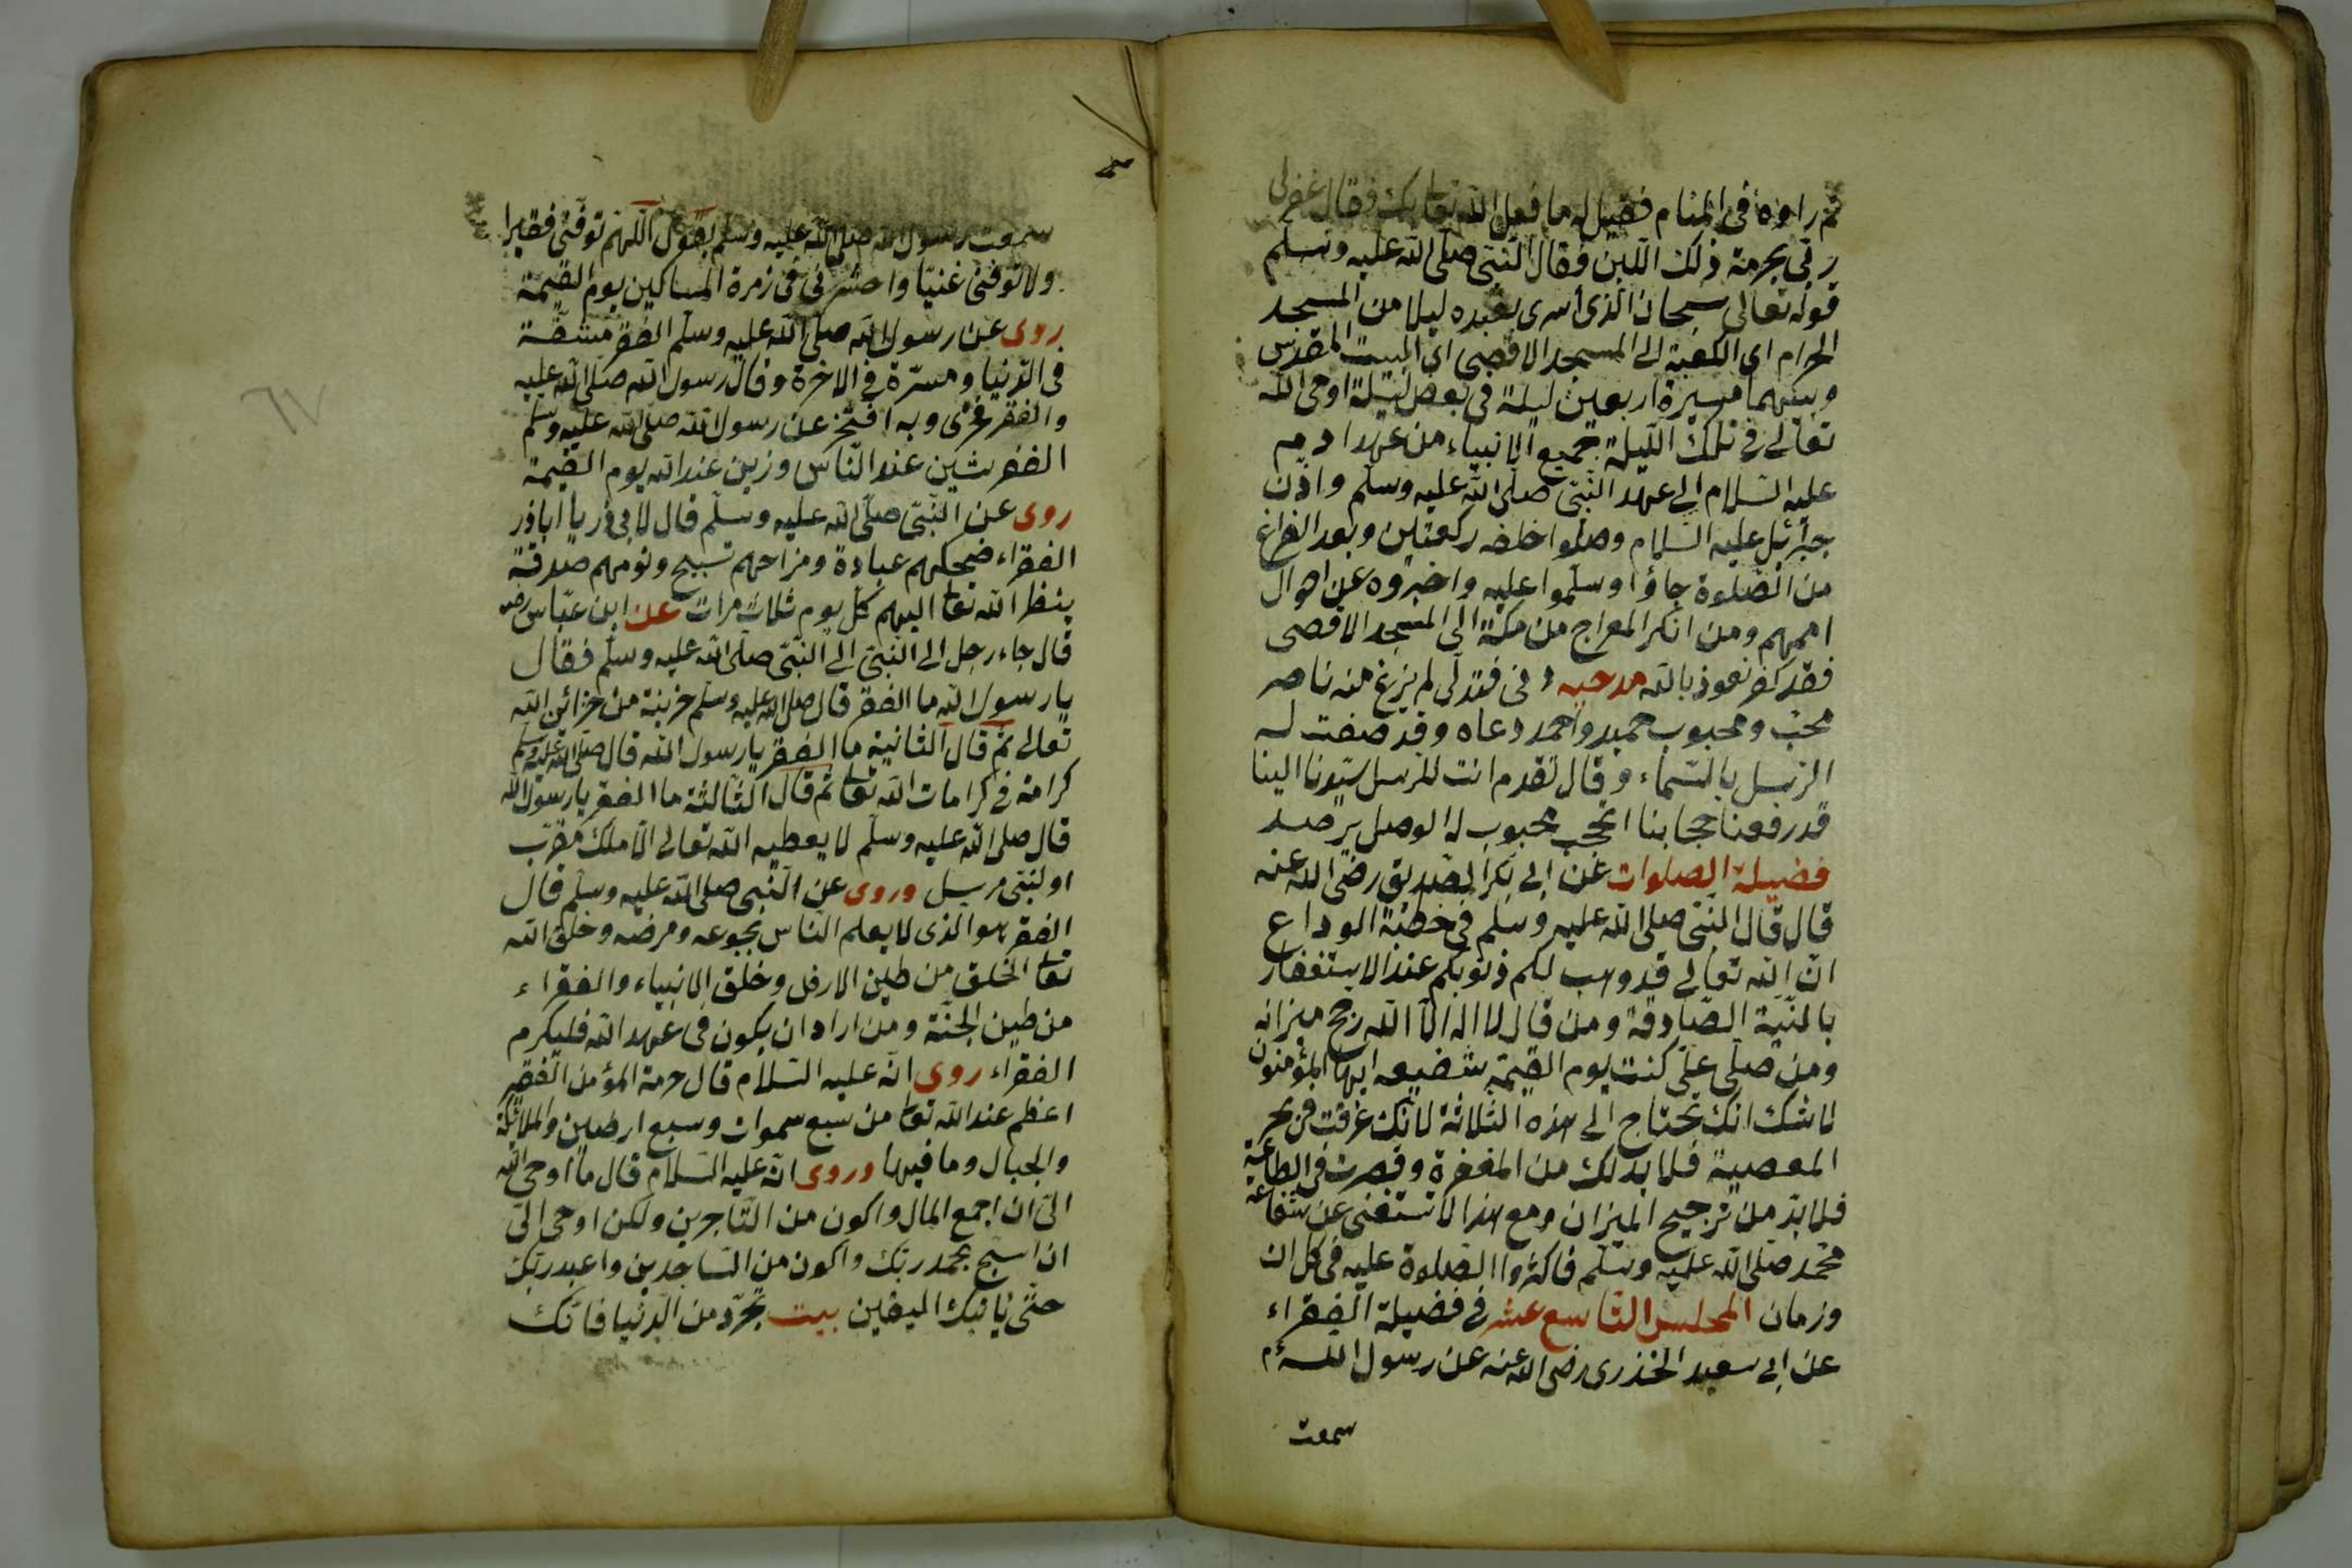 ثم راوه في المنام فقيل له ما فعل الله تعا بك فقال غفر لي
ربي بحرمة ذلك اللبن فقال النبي صلى الله عليه وسلم
قوله تعالى سبحان الذي أسرى بعبده ليلا من المسجد
الحرام اى الكعبة الى المسجد الاقصى اى البيت المقدس
وبينهما مسيرة اربعين ليلة في بعض ليلة اوحى الله
تعالى في تلك الليلة جميع الانبياء من عهد ادم
عليه السلام الى عهد النبي صلى الله عليه وسلم واذن
جبرائيل عليه السلام وصلوا خلفه ركعتين وبعد الفراغ
من الصلوة جاؤا وسلموا عليه واخبروه عن احوال
اممهم ومن انكر المعراج من مكة الى المسجد الاقصى
فقد كفر نعوذ بالله مدحيه دنى فتدلى لم يزغ منه ناصر
محب ومحبوب حميد واحمد دعاه وقد صفت له
الرسل بالسماء وقال تقدم انت للرسل سيدنا الينا
قد رفعنا حجابنا محبوب له الوصل يرصد
فضيلة الصلوات عن ابى بكر الصديق رضى الله عنه
قال قال النبي صلى الله عليه وسلم في خطبة الوداع
ان الله تعالى قد وهب لكم ذنوبكم عند الاستغفار
بالنية الصادقة ومن قال لا اله الا الله رجح ميزانه
ومن صلى على كنت يوم القيمة شفيعه ايها المؤمنون
لا شك انك تحتاج الى هذه الثلاثة لانك غرقت في بحر
المعصية فلا بد لك من المغفرة وقصرت في الطاعة
فلا بد من ترجيح الميزان ومع هذا لا تستغنى عن شفاعة
محمد صلى الله عليه وسلم فاكثروا الصلوة عليه في كل ان
وزمان المجلس التاسع عشر في فضيلة الفقراء
عن ابى سعيد الخذرى رضى الله عنه عن رسول الله م
سمعت
سمعت رسول الله صلى الله عليه وسلم يقول اللهم توفنى فقيرا
ولا توفنى غنيا واحشرنى في زمرة المساكين يوم القيمة
روى عن رسول الله صلى الله عليه وسلم الفقر مشقة
في الدنيا ومسرة في الاخرة وقال رسول الله صلى الله عليه
والفقر فخرى وبه افتخر عن رسول الله صلى الله عليه وسلم
الفقر شين عند الناس وزين عند الله يوم القيمة
روى عن النبي صلى الله عليه وسلم قال لابى ذر يا اباذر
الفقراء ضحكهم عبادة ومزاحهم تسبيح ونومهم صدقة
ينظر الله تعا اليهم كل يوم ثلاث مرات عن ابن عباس رضه
قال جاء رجل الى النبي الى النبي صلى الله عليه وسلم فقال
يا رسول الله ما الفقر قال صلى الله عليه وسلم خزينة من خزائن الله
تعالى ثم قال الثانية ما الفقر يا رسول الله قال صلى الله عليه وسلم
كرامة في كرامات الله تعا ثم قال الثالثة ما الفقر يا رسول الله
قال صلى الله عليه وسلم لا يعطيه الله تعالى الا ملك مقرب
او لنبى مرسل وروى عن النبي صلى الله عليه وسلم قال
الفقر هو الذى لا يعلم الناس بجوعه ومرضه وخلق الله
تعا الخلق من طين الارض وخلق الانبياء والفقراء
من طين الجنة ومن اراد ان يكون في عهد الله فليكرم
الفقراء روى انه عليه السلام قال حرمة المؤمن الفقير
اعظم عند الله تعا من سبع سموات وسبع ارضين والملائكة
والجبال وما فيها وروى انه عليه السلام قال ما اوحى الله
الى ان اجمع المال واكون من التاجرين ولكن اوحى الى
ان اسبح بحمد ربك واكون من الساجدين واعبد ربك
حتى يأتيك اليقين بيت تجرد من الدنيا فانك
٦٧